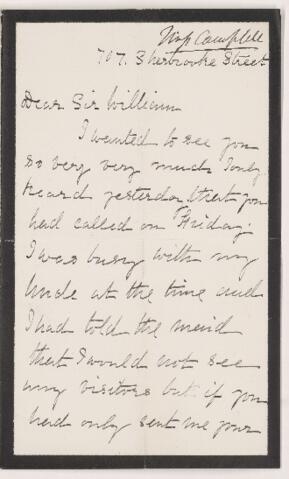 Miss Campbell
707. Sherbrooke Street
Dear Sir William
I wanted to see you
so very very much I only
heard yesterday that you
had called on Friday.
I was busy with my
Uncle at the time and
I had told the maid
that I would not see
any visitors but if you
had only sent me your